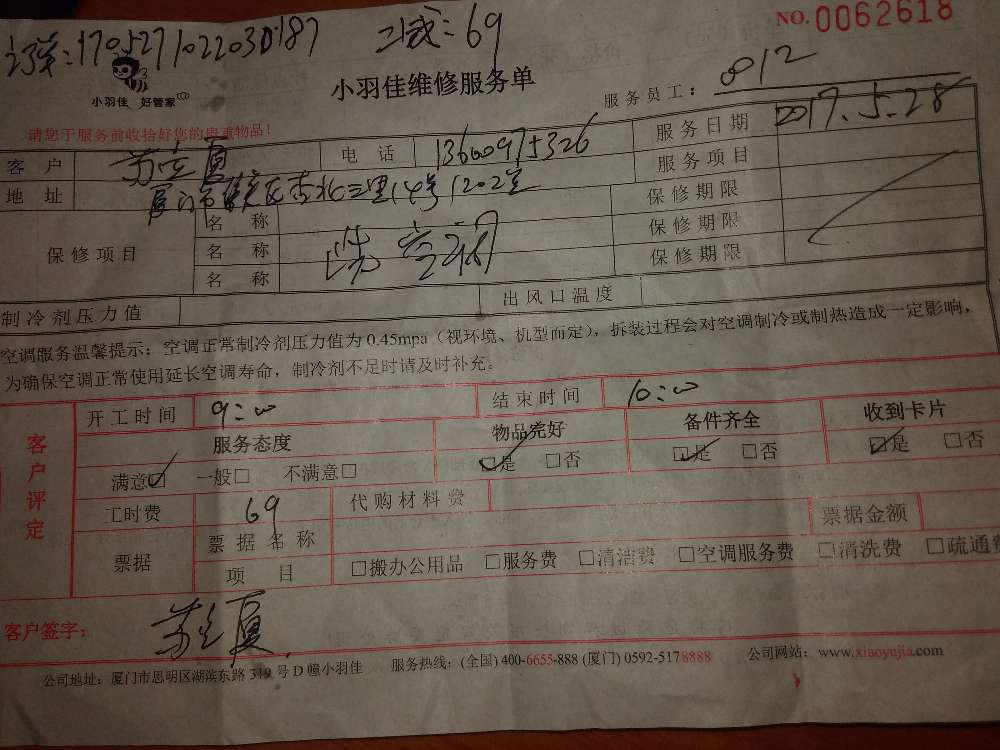 NO. 0062618
170527102203D187 :69
小羽佳 好管家
小羽佳维修服务单
服务员工: 012
请您于服务前收拾好您的贵重物品!
客户 苏立夏 电话 13600975326 服务日期 2017.5.28
地址 厦门市 北三里14号1202室 服务项目
保修项目 名称 保修期限
名称 洗空调 保修期限
名称 保修期限
制冷剂压力值 出风口温度
空调服务温馨提示:空调正常制冷剂压力值为0.45mpa(视环境、机型而定),拆装过程会对空调制冷或制热造成一定影响,
为确保空调正常使用延长空调寿命,制冷剂不足时请及时补充。
客户评定
开工时间 9:00 结束时间 10:00
服务态度 物品完好 备件齐全 收到卡片
满意☑ 一般□ 不满意□ ☑是 □否 ☑是 □否 ☑是 □否
工时费 69 代购材料费 票据金额
票据 票据名称
项目 □搬办公用品 □服务费 □清洁费 □空调服务费 □清洗费 □疏通费
客户签字: 苏立夏
公司地址:厦门市思明区湖滨东路319号D幢小羽佳 服务热线:(全国)400-6655-888(厦门)0592-5178888 公司网站:www.xiaoyujia.com